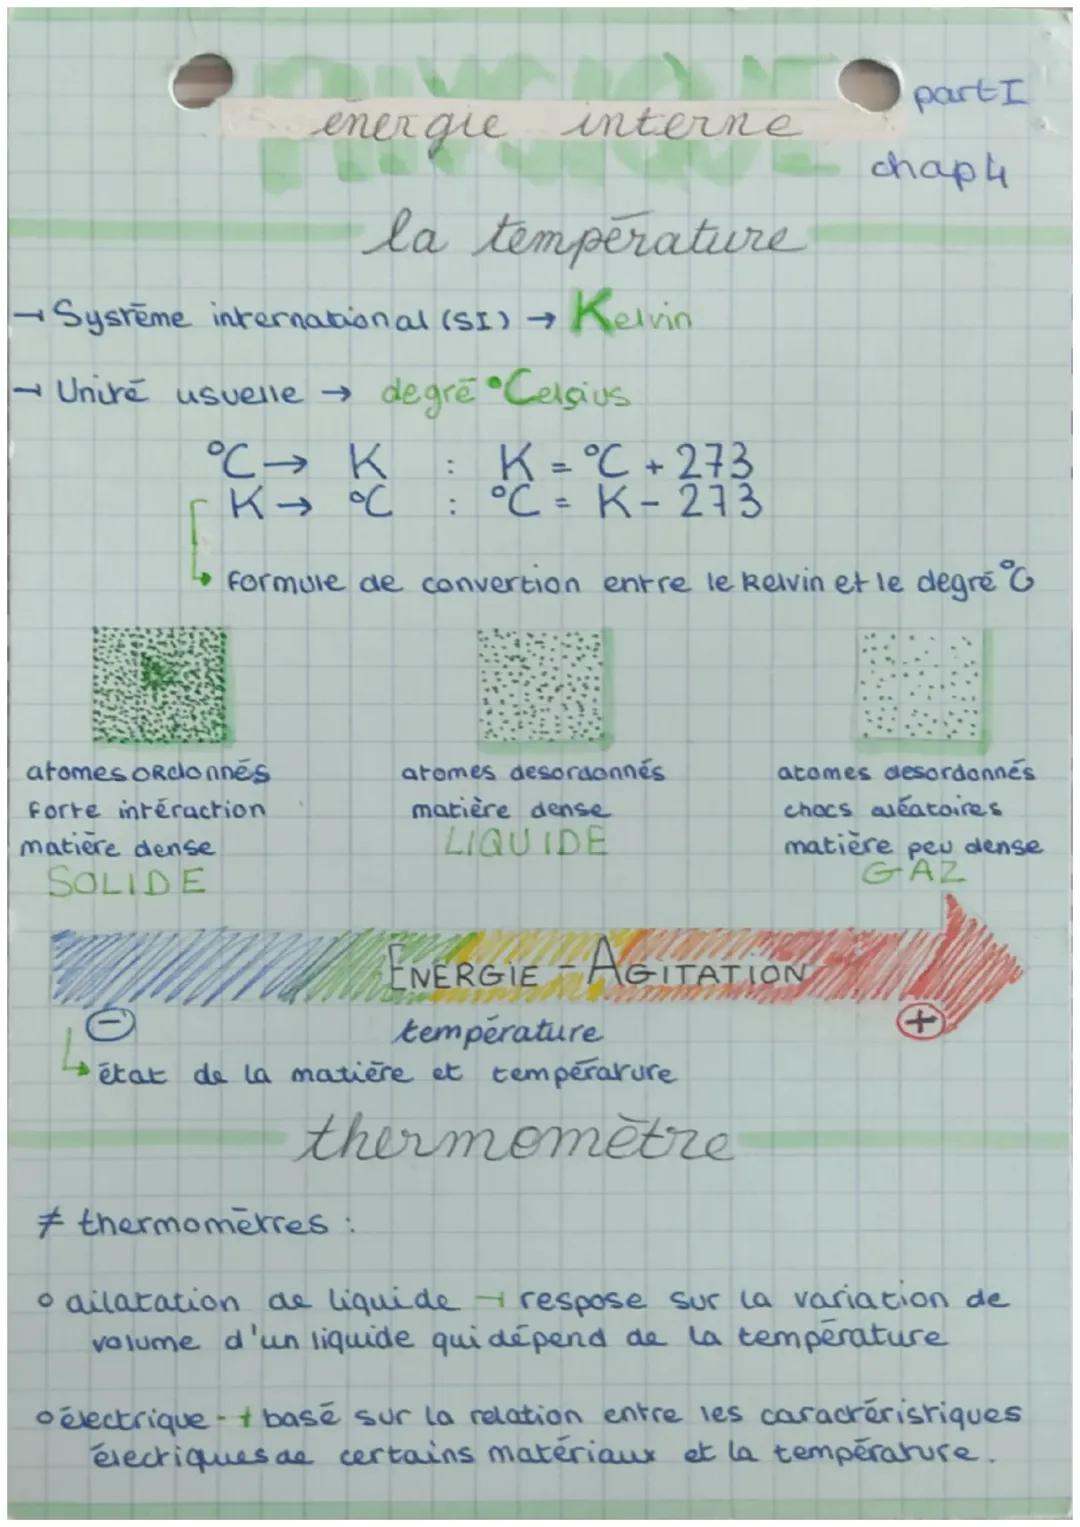 PHYSIQUE
énergie interne
part I
chap 4
la température
→ Système international (SI) → Kelvin
→ Unité usuelle → degré °Celsius
°C → K : K = °C + 273
K → °C : °C = K - 273
formule de convertion entre le Kelvin et le degré °C
atomes ordonnés
forte intéraction
matière dense
SOLIDE
atomes desordonnés
matière dense
LIQUIDE
atomes desordonnés
chocs aléatoires
matière peu dense
GAZ
ENERGIE - AGITATION
- température +
état de la matière et température
thermomètre
≠ thermomètres :
° dilatation de liquide → respose sur la variation de
volume d'un liquide qui dépend de la température
° électrique → basé sur la relation entre les caractéristiques
électriques de certains matériaux et la température.